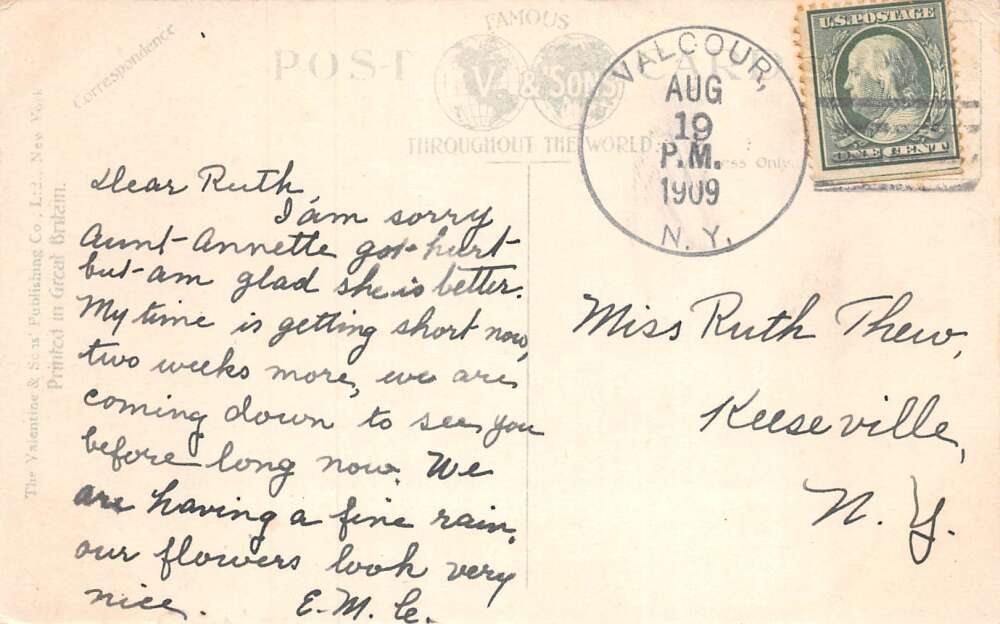 Correspondence
FAMOUS
POST CARD
V. & SONS
THROUGHOUT THE WORLD.
ess Only.
VALCOUR,
AUG
19
P.M.
1909
N. Y.
U.S. POSTAGE
ONE CENT
The Valentine & Sons' Publishing Co., Ltd., New York
Printed in Great Britain.
Dear Ruth,
I am sorry
Aunt Annette got hurt
but am glad she is better.
My time is getting short now,
two weeks more, we are
coming down to see you
before long now. We
are having a fine rain,
our flowers look very
nice. E. M. C.
Miss Ruth Thew,
Keeseville,
N. Y.